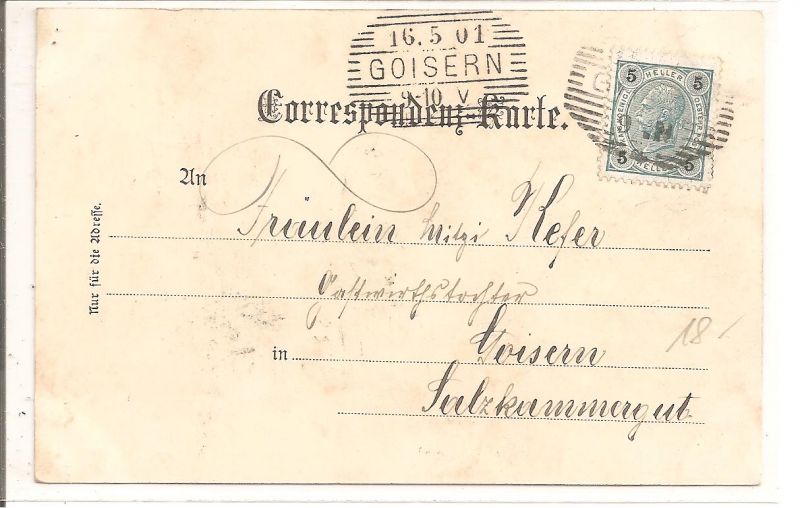 16.5 01
GOISERN
9-10 V
Correspondenz-Karte.
5 HELLER 5
5 HELLER 5
An
Fräulein Mitzi Kefer
Gastwirthstochter
in Goisern
Salzkammergut
Nur für die Adresse.
18